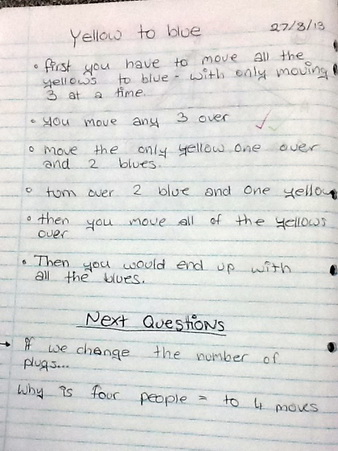 Yellow to blue 27/3/13
• first you have to move all the
yellows to blue - with only moving
3 at a time.
• you move any 3 over
• move the only yellow one over
and 2 blues.
• turn over 2 blue and one yellow
• then you move all of the yellows
over
• Then you would end up with
all the blues.
Next Questions
→ if we change the number of
plugs...
why is four people = to 4 moves